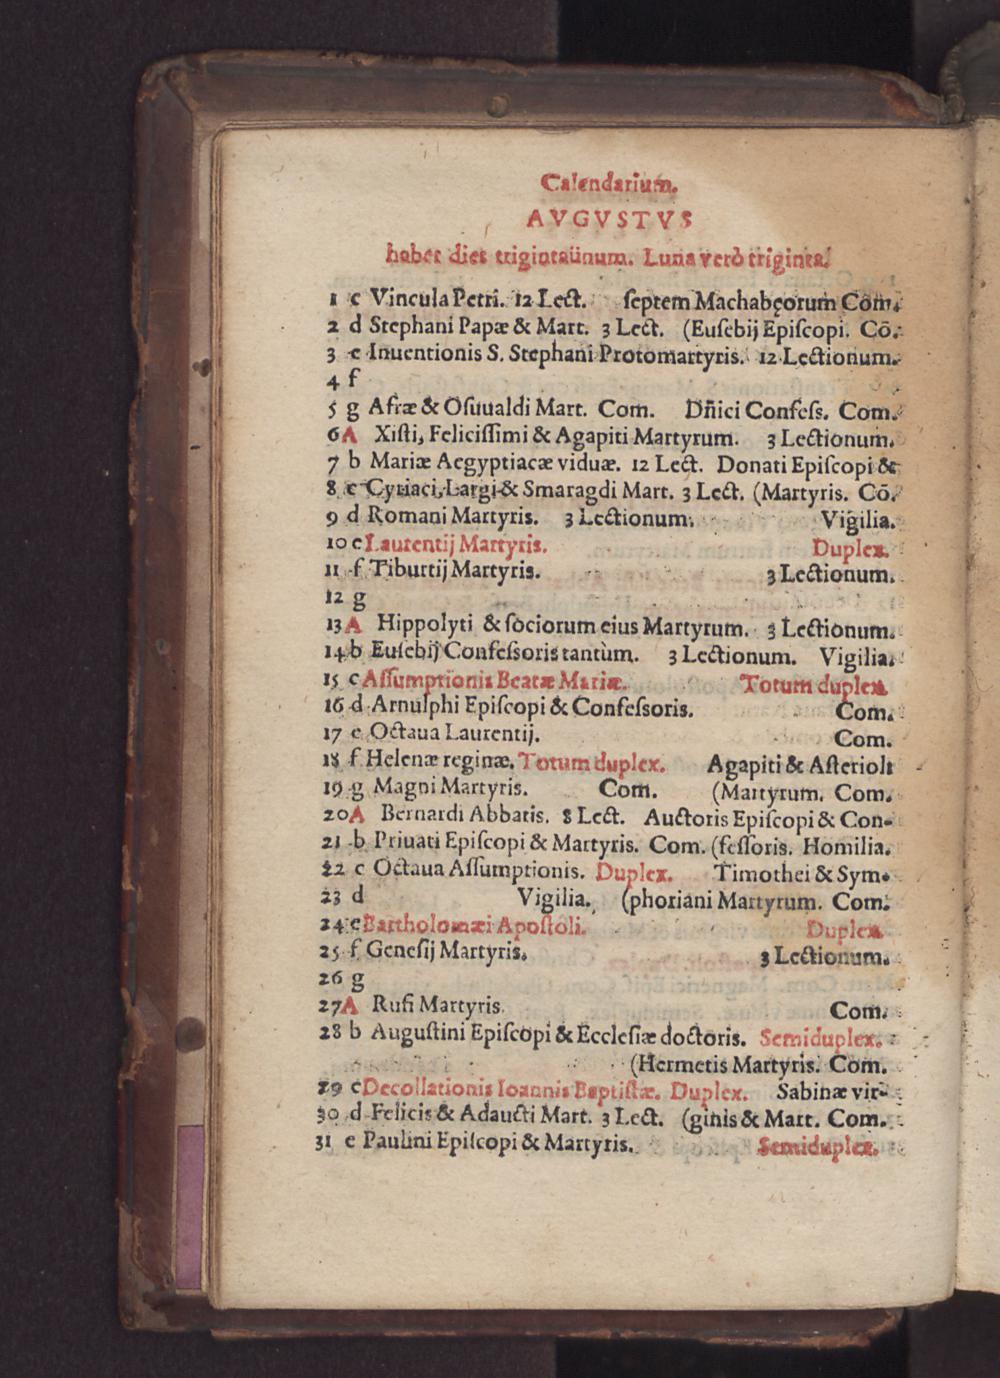 Calendarium.
AVGVSTVS
habet dies trigintaünum. Luna verò triginta.
1 c Vincula Petri. 12 Lect. septem Machabęorum Cōm.
2 d Stephani Papæ & Mart. 3 Lect. (Eusebij Episcopi. Cō.
3 e Inuentionis S. Stephani Protomartyris. 12 Lectionum.
4 f
5 g Afræ & Osuualdi Mart. Com. Dñici Confess. Com.
6 A Xisti, Felicissimi & Agapiti Martyrum. 3 Lectionum.
7 b Mariæ Aegyptiacæ viduæ. 12 Lect. Donati Episcopi &
8 c Cyriaci, Largi & Smaragdi Mart. 3 Lect. (Martyris. Cō.
9 d Romani Martyris. 3 Lectionum. Vigilia.
10 e Laurentij Martyris. Duplex.
11 f Tiburtij Martyris. 3 Lectionum.
12 g
13 A Hippolyti & sociorum eius Martyrum. 3 Lectionum.
14 b Eusebij Confessoris tantùm. 3 Lectionum. Vigilia.
15 c Assumptionis Beatæ Mariæ. Totum duplex.
16 d Arnulphi Episcopi & Confessoris. Com.
17 e Octaua Laurentij. Com.
18 f Helenæ reginæ. Totum duplex. Agapiti & Asterioli
19 g Magni Martyris. Com. (Martyrum. Com.
20 A Bernardi Abbatis. 8 Lect. Auctoris Episcopi & Con-
21 b Priuati Episcopi & Martyris. Com. (fessoris. Homilia.
22 c Octaua Assumptionis. Duplex. Timothei & Sym-
23 d Vigilia. (phoriani Martyrum. Com.
24 e Bartholomæi Apostoli. Duplex.
25 f Genesij Martyris. 3 Lectionum.
26 g
27 A Rufi Martyris. Com.
28 b Augustini Episcopi & Ecclesiæ doctoris. Semiduplex.
(Hermetis Martyris. Com.
29 c Decollationis Ioannis Baptistæ. Duplex. Sabinæ vir-
30 d Felicis & Adaucti Mart. 3 Lect. (ginis & Mart. Com.
31 e Paulini Episcopi & Martyris. Semiduplex.